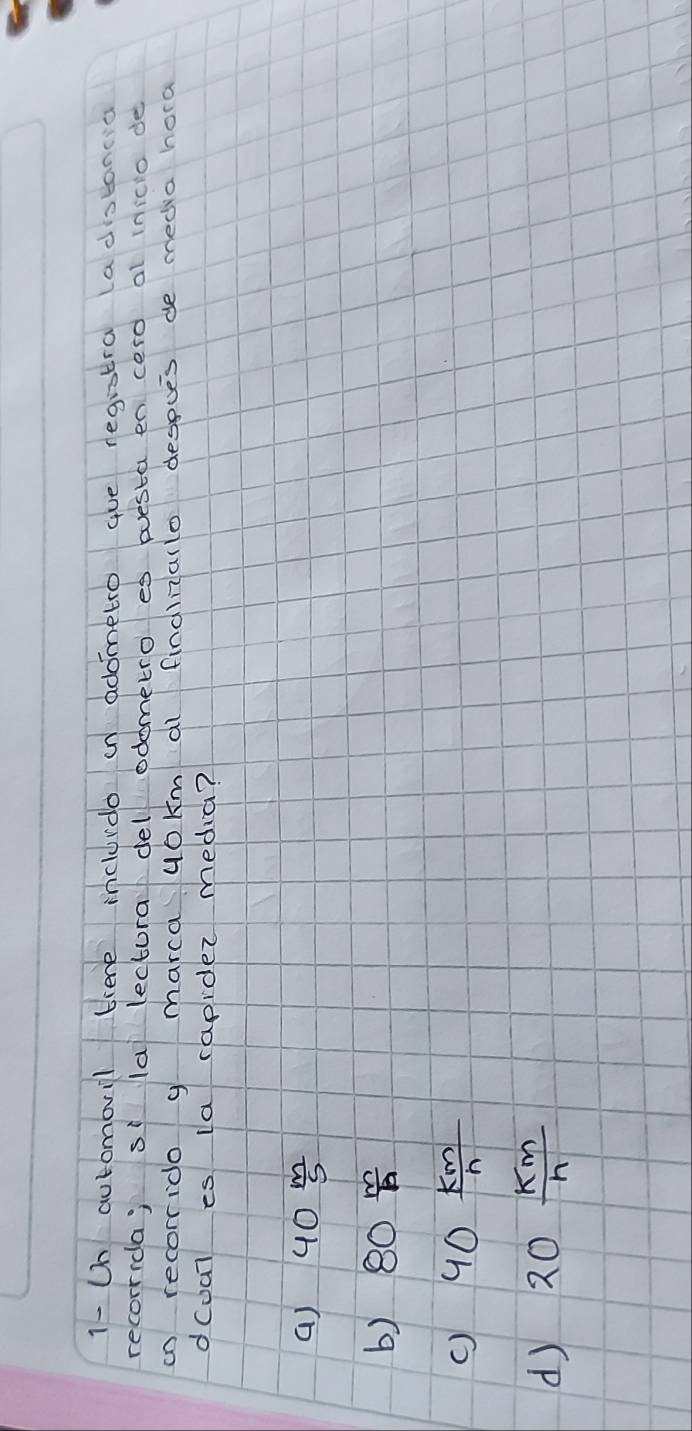 1- Un automovil tiene incluido un adómetro que registra la distancia
recorrida; si la lectura del odometro es puesta en cero al inicio de
un recorrido y marca 40 km al finalizarlo después de media hora
d cual es la rapidez media?
a) 40 m/s
b) 80 m/
c) 40 Km/h
d) 20 Km/h